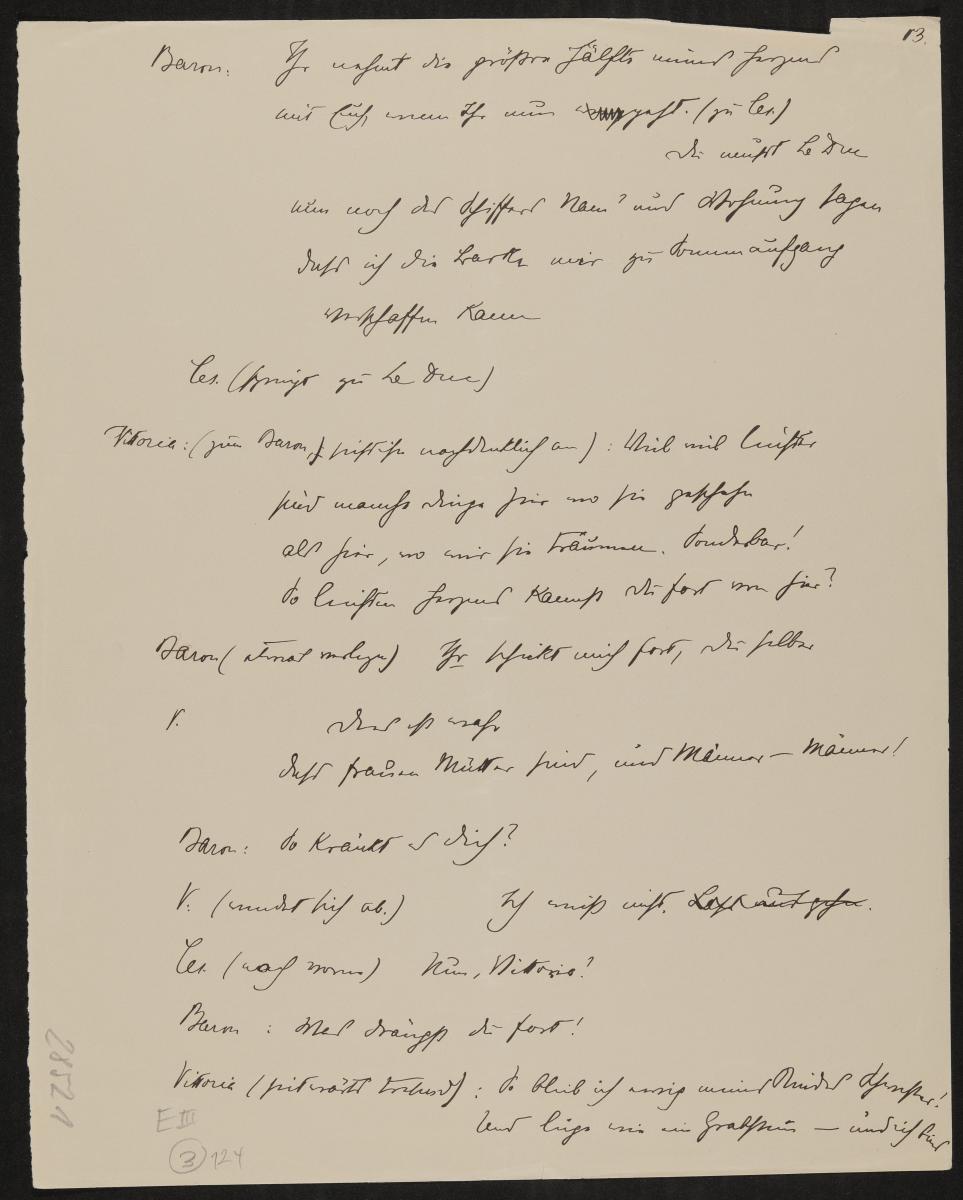 13.
Baron: Ihr nehmt die größre Hälfte meines Herzens
mit Euch, wenn Ihr nun geht. (zu Ces.)
Du mußt Le Duc
nun noch des Schiffers Nam' und Wohnung sagen
daß ich die Barke mir zu Sonnenaufgang
verschaffen kann
Ces. (springt zu Le Duc)
Vittoria: (zum Baron, sieht ihn nachdenklich an): Viel viel leichter
sind manche Dinge hier wo sie geschehn
als hier, wo wir sie träumen. Sonderbar!
So leichten Herzens kannst du fort von hier?
Baron (etwas verlegen) Ihr schickt mich fort, du selber
V. Das ist wahr
daß Frauen Mütter sind, und Männer – Männer!
Baron: So kränkt es dich?
V. (wendet sich ab.) Ich weiß nicht. Laß uns gehn.
Ces. (nach vorne) Nun, Vittoria!
Baron: Was drängst du fort!
Vittoria (seitwärts tretend): So bleib ich ewig meines Kindes Schwester!
Und lüge wie ein Grabstein – und ich bins
28521
E III
3 124